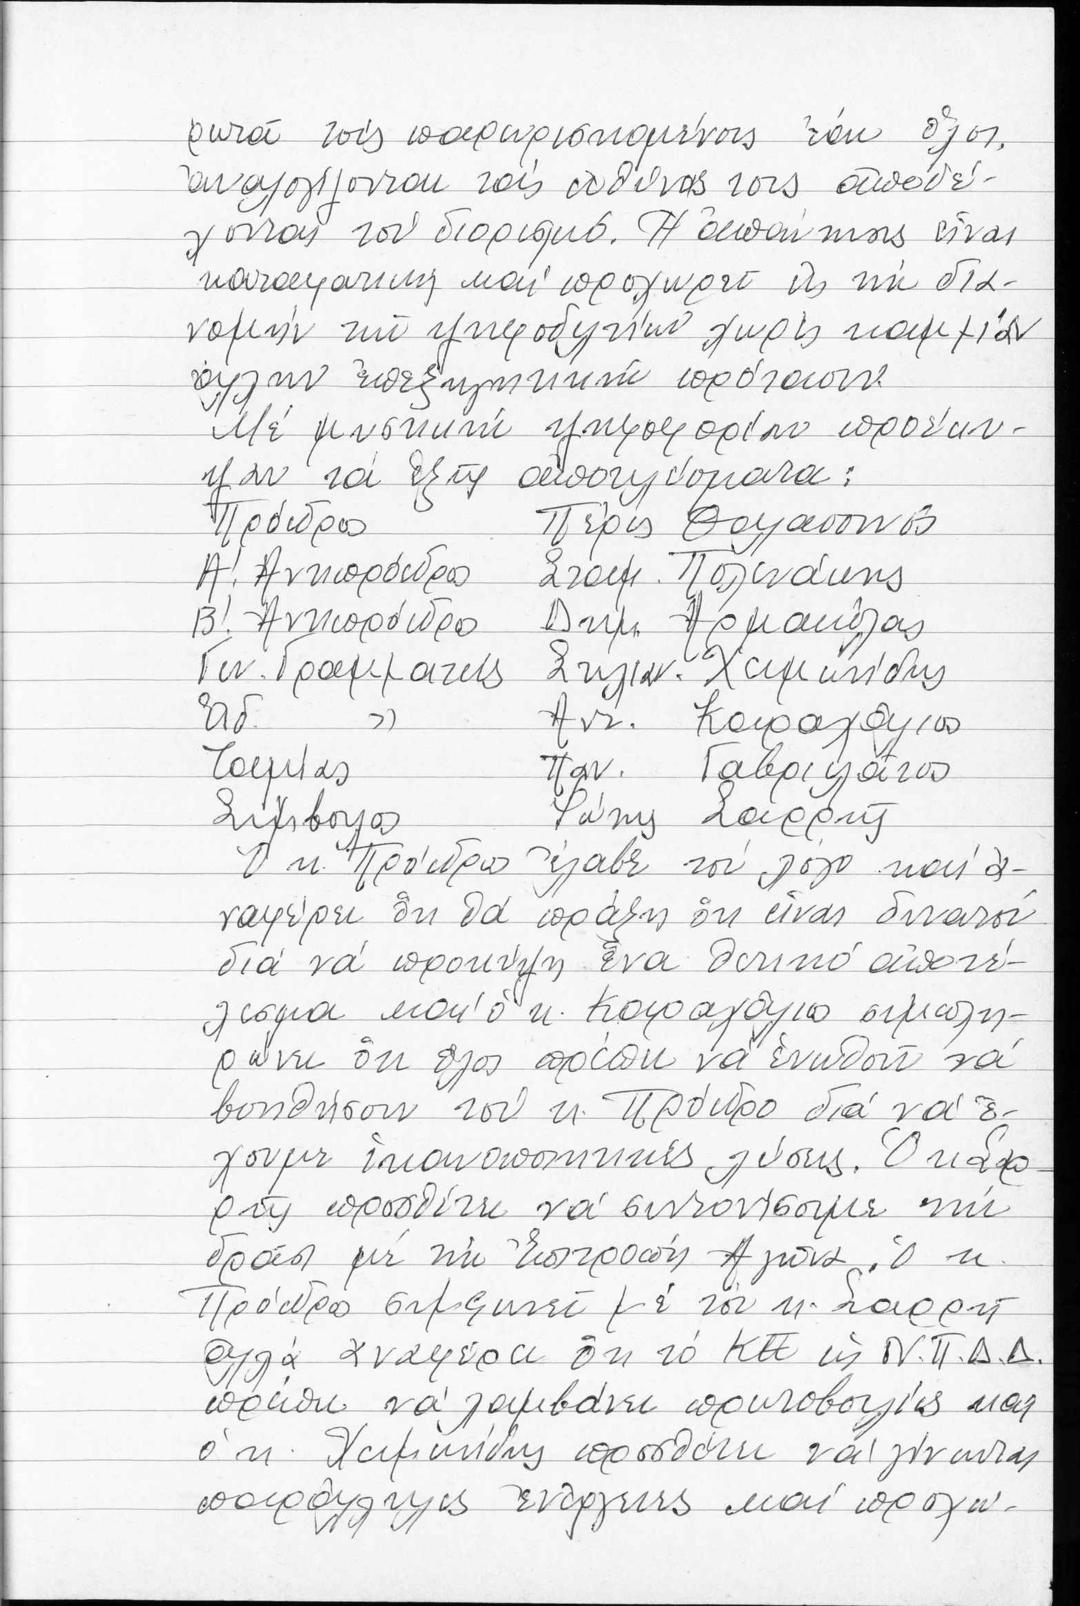 ρωτᾶ τούς παρευρισκομένους ἐάν ὅλοι,
ἀναλογίζονται τάς εὐθύνας τους ἀποδέ-
χονται τόν διορισμό. Ἡ ἀπάντησις εἶναι
καταφατική καί προχωρεῖ εἰς τήν δια-
νομήν τῶν ψηφοδελτίων χωρίς καμμίαν
ἄλλην ἐπεξηγητικήν πρότασιν.
Μέ μυστικήν ψηφοφορίαν προέκυ-
ψαν τά ἑξῆς ἀποτελέσματα:
Πρόεδρος Πέρις
Α'. Ἀντιπρόεδρος Σταμ. Πολενάκης
Β'. Ἀντιπρόεδρος Δημ. Ἀρμακόλας
Γεν. Γραμματεύς Στυλιαν. Χειμωνίδης
Εἰδ. " Ἀντ. Καραχάλιος
Ταμίας Παν. Γαβριελᾶτος
Σύμβουλος Φώτης Σαρρῆς
Ὁ κ. Πρόεδρος ἔλαβε τόν λόγο καί ἀ-
ναφέρει ὅτι θά πράξη ὅτι εἶναι δυνατόν
διά νά προκύψη ἕνα θετικό ἀποτέ-
λεσμα καί ὁ κ. Καραχάλιος συμπλη-
ρώνει ὅτι ὅλοι πρέπει νά ἑνωθοῦν νά
βοηθήσουν τόν κ. Πρόεδρο διά νά ἔ-
χουμε ἱκανοποιητικές λύσεις. Ὁ κ. Σαρ-
ρῆς προσθέτει νά συντονίσουμε τήν
δρᾶσι μέ τήν Ἐπιτροπήν Ἀγῶνα. Ὁ κ.
Πρόεδρος συμφωνεῖ μέ τόν κ. Σαρρῆ
ἀλλά ἀναφέρει ὅτι τό ὡς Ν.Π.Δ.Δ.
πρέπει νά λαμβάνει πρωτοβουλίες καί
ὁ κ. Χειμωνίδης προσθέτει νά γίνωνται
παράλληλες ἐνέργειες καί προχω-